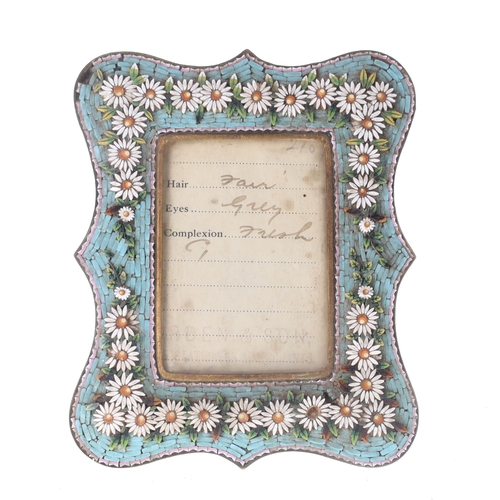 Hair fair
Eyes Grey
Complexion Fresh